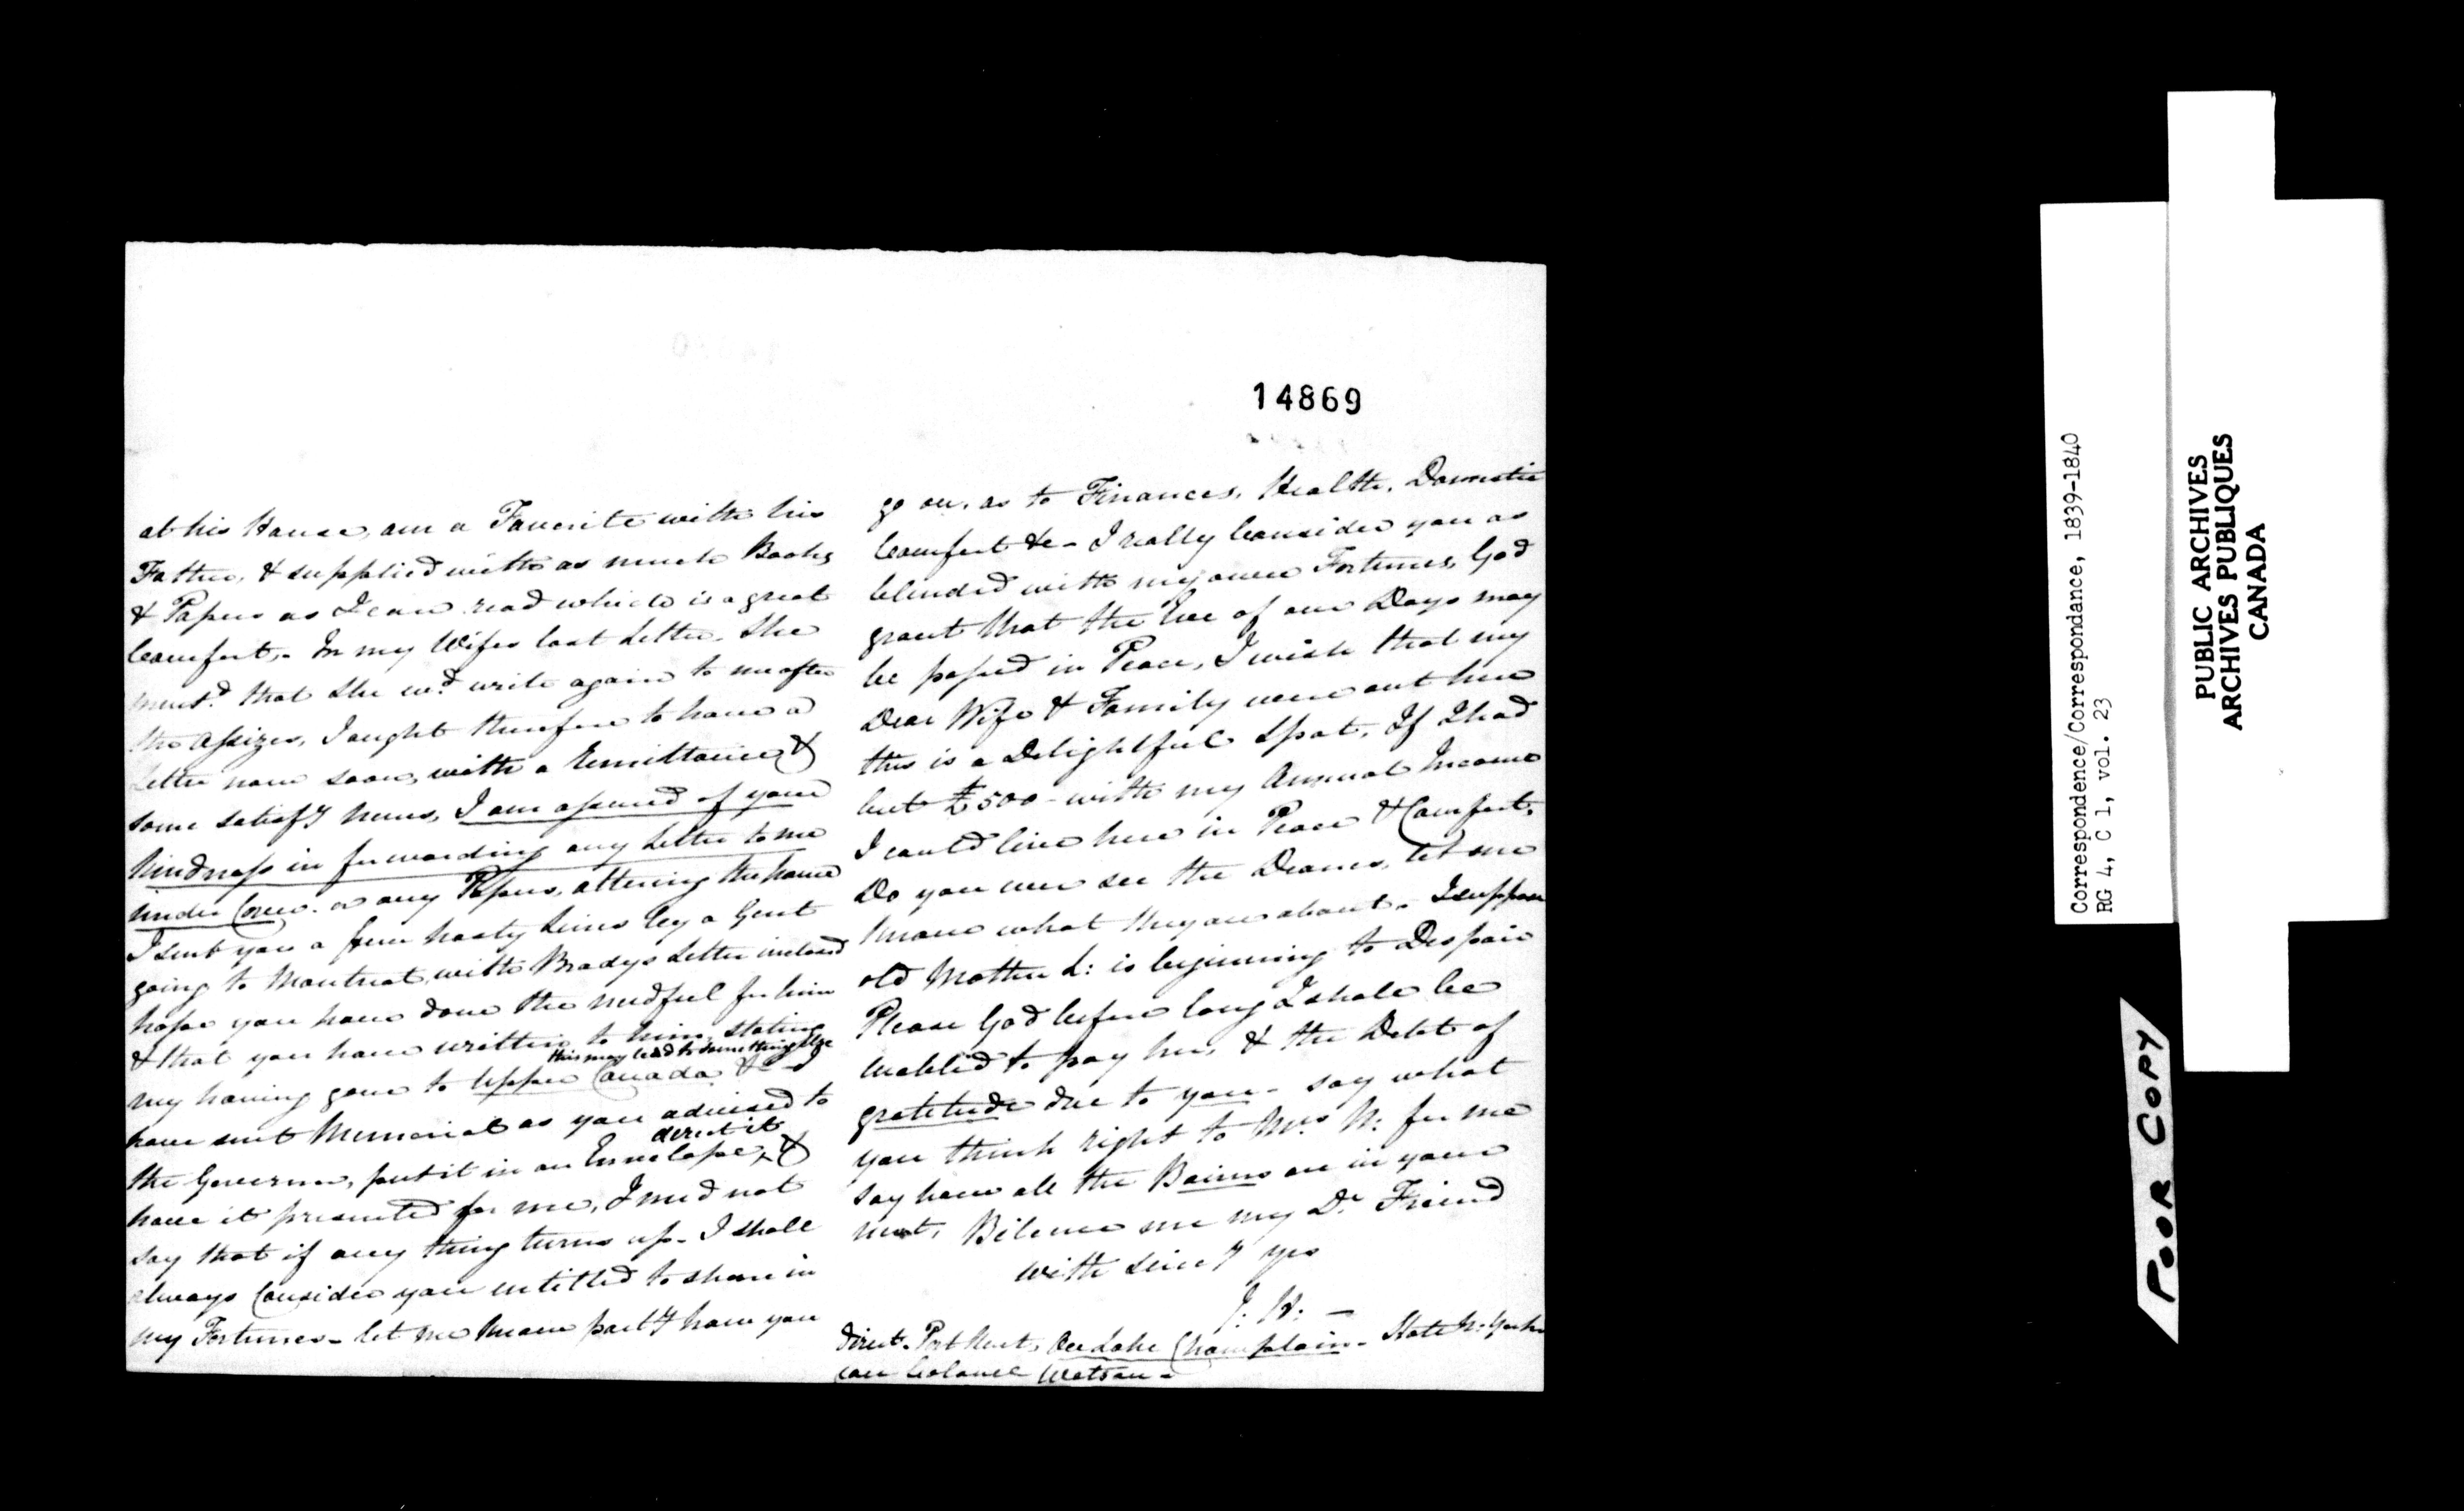 14869
at his House, am a Favorite with his
Father, & supplied with as much Books
& Papers as I can read which is a great
Comfort,- In my Wifes last Letter, She
ment.d that she wd. write again to me after
the Assizes, I ought therefore to have a
Letter now soon, with a Remittance &
some satisfy News, I am assured of your
kindness in forwarding any Letter to me
under Cover. or any Papers, altering the name
I sent you a few hasty Lines by a Gent
going to Montreal, with Bradys Letter inclosed
hope you have done the needful for him
& that you have written to him, stating
this may lead to something else
my having gone to Upper Canada &c -
have sent Memorial as you advised to
direct it
the Governor, put it in an Envelope, &
have it presented for me, I need not
say that if any thing turns up - I shall
always Consider you entitled to share in
my Fortunes - let me know partly how you
go on, as to Finances, Health, Domestic
Comfort &c - I really Consider you as
blended with my own Fortunes, God
grant that the Eve of our Days may
be passed in Peace, I wish that my
Dear Wife & Family were out here
this is a Delightful Spot, If I had
but £500 - with my Annual Income
I could live here in Peace & Comfort,
Do you ever see the Deanes, let me
know what they are about. I suppose
old Mother L: is beginning to Despair
Please God before long I shall be
enabled to pay her, & the Debt of
gratitude due to you - say what
you think right to Mrs N: for me
say how all the Bairns are in your
next, Believe me my Dr. Friend
with sincy yrs
J. H: -
direct. Port Kent, On Lake Champlain - State N: York
care Colonel Watson -
Correspondence/Correspondance, 1839-1840
RG 4, C 1, vol. 23
PUBLIC ARCHIVES
ARCHIVES PUBLIQUES
CANADA
POOR COPY